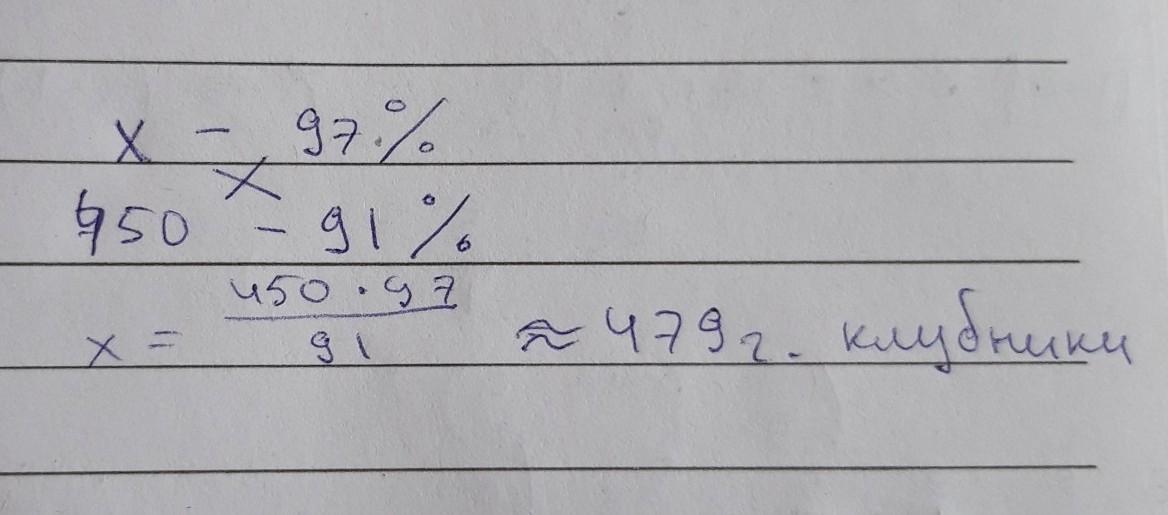 x - 97%
450 - 91%
x = 450 · 97 / 91 ≈ 479 г. клубники